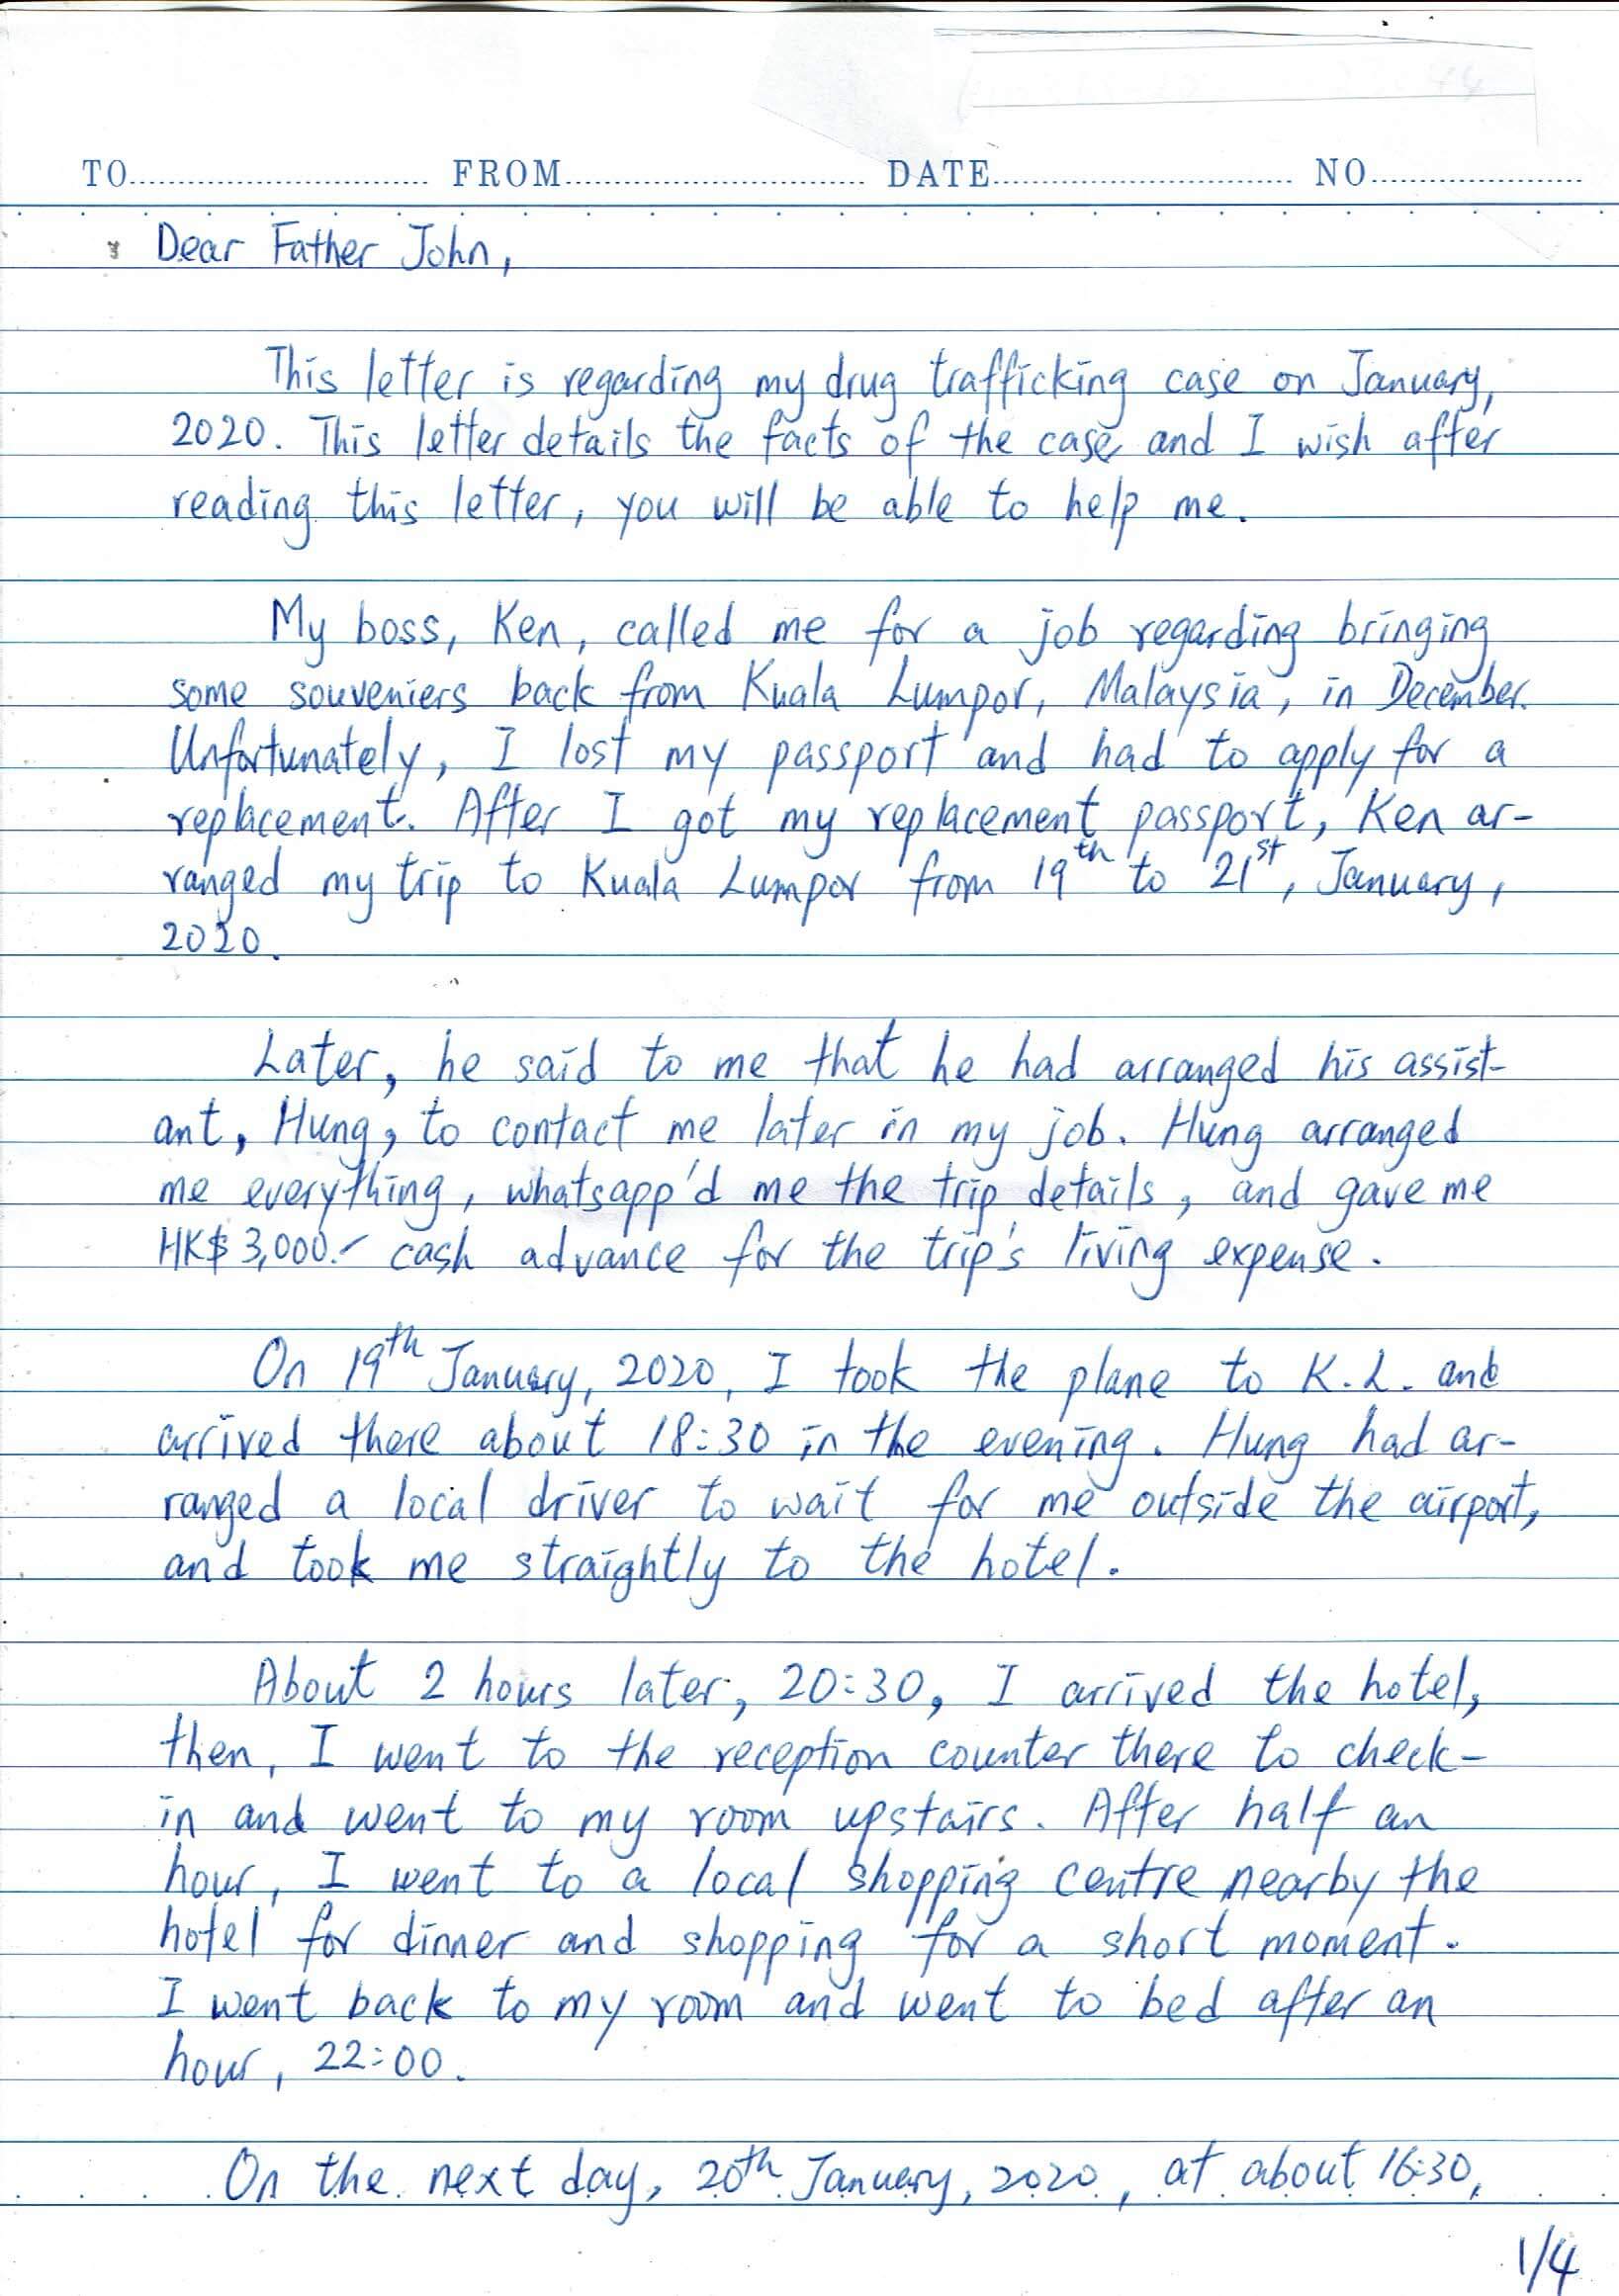 TO FROM DATE NO
Dear Father John,
This letter is regarding my drug trafficking case on January,
2020. This letter details the facts of the case and I wish after
reading this letter, you will be able to help me.
My boss, Ken, called me for a job regarding bringing
some souveniers back from Kuala Lumpor, Malaysia, in December.
Unfortunately, I lost my passport and had to apply for a
replacement. After I got my replacement passport, Ken ar-
ranged my trip to Kuala Lumpor from 19th to 21st, January,
2020.
Later, he said to me that he had arranged his assist-
ant, Hung, to contact me later in my job. Hung arranged
me everything, whatsapp'd me the trip details, and gave me
HK$3,000.- cash advance for the trip's living expense.
On 19th January, 2020, I took the plane to K.L. and
arrived there about 18:30 in the evening. Hung had ar-
ranged a local driver to wait for me outside the airport,
and took me straightly to the hotel.
About 2 hours later, 20:30, I arrived the hotel,
then, I went to the reception counter there to check-
in and went to my room upstairs. After half an
hour, I went to a local shopping centre nearby the
hotel for dinner and shopping for a short moment.
I went back to my room and went to bed after an
hour, 22:00.
On the next day, 20th January, 2020, at about 16:30,
1/4